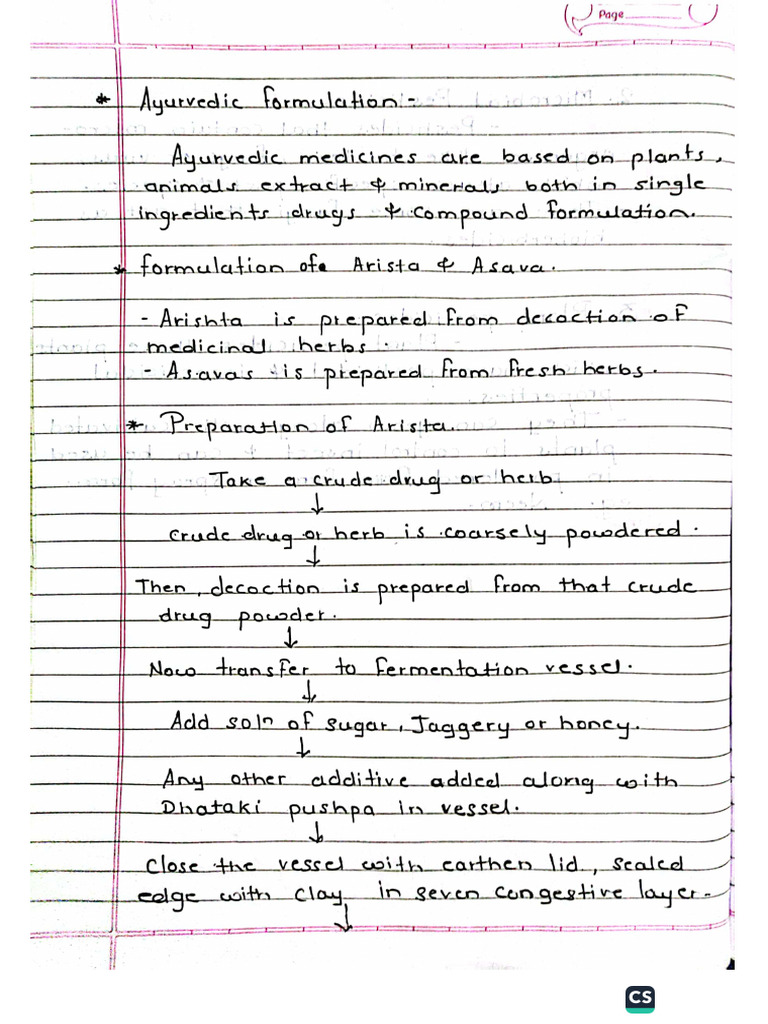 Page
* Ayurvedic formulation -
Ayurvedic medicines are based on plants,
animals extract & minerals both in single
ingredients drugs & compound formulation.
* formulation of Arista & Asava.
- Arishta is prepared from decoction of
medicinal herbs.
- Asavas is prepared from fresh herbs.
* Preparation of Arista.
Take a crude drug or herb
↓
crude drug or herb is coarsely powdered.
↓
Then, decoction is prepared from that crude
drug powder.
↓
Now transfer to fermentation vessel.
↓
Add soln of sugar, Jaggery or honey.
↓
Any other additive added along with
Dhataki pushpa in vessel.
↓
Close the vessel with earthen lid, sealed
edge with clay in seven congestive layer.
↓
CS